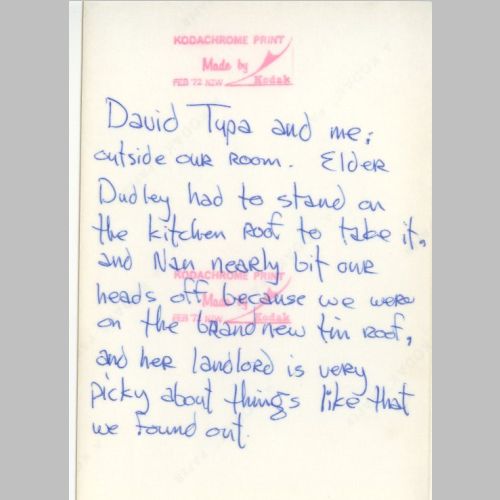 KODACHROME PRINT
Made by
FEB '72 N2W Kodak
David Tupa and me;
outside our room. Elder
Dudley had to stand on
the kitchen roof to take it,
and Nan nearly bit our
KODACHROME PRINT
heads off because we were
Made by
on the brand new tin roof,
FEB '72 N2W Kodak
and her landlord is very
picky about things like that
we found out.